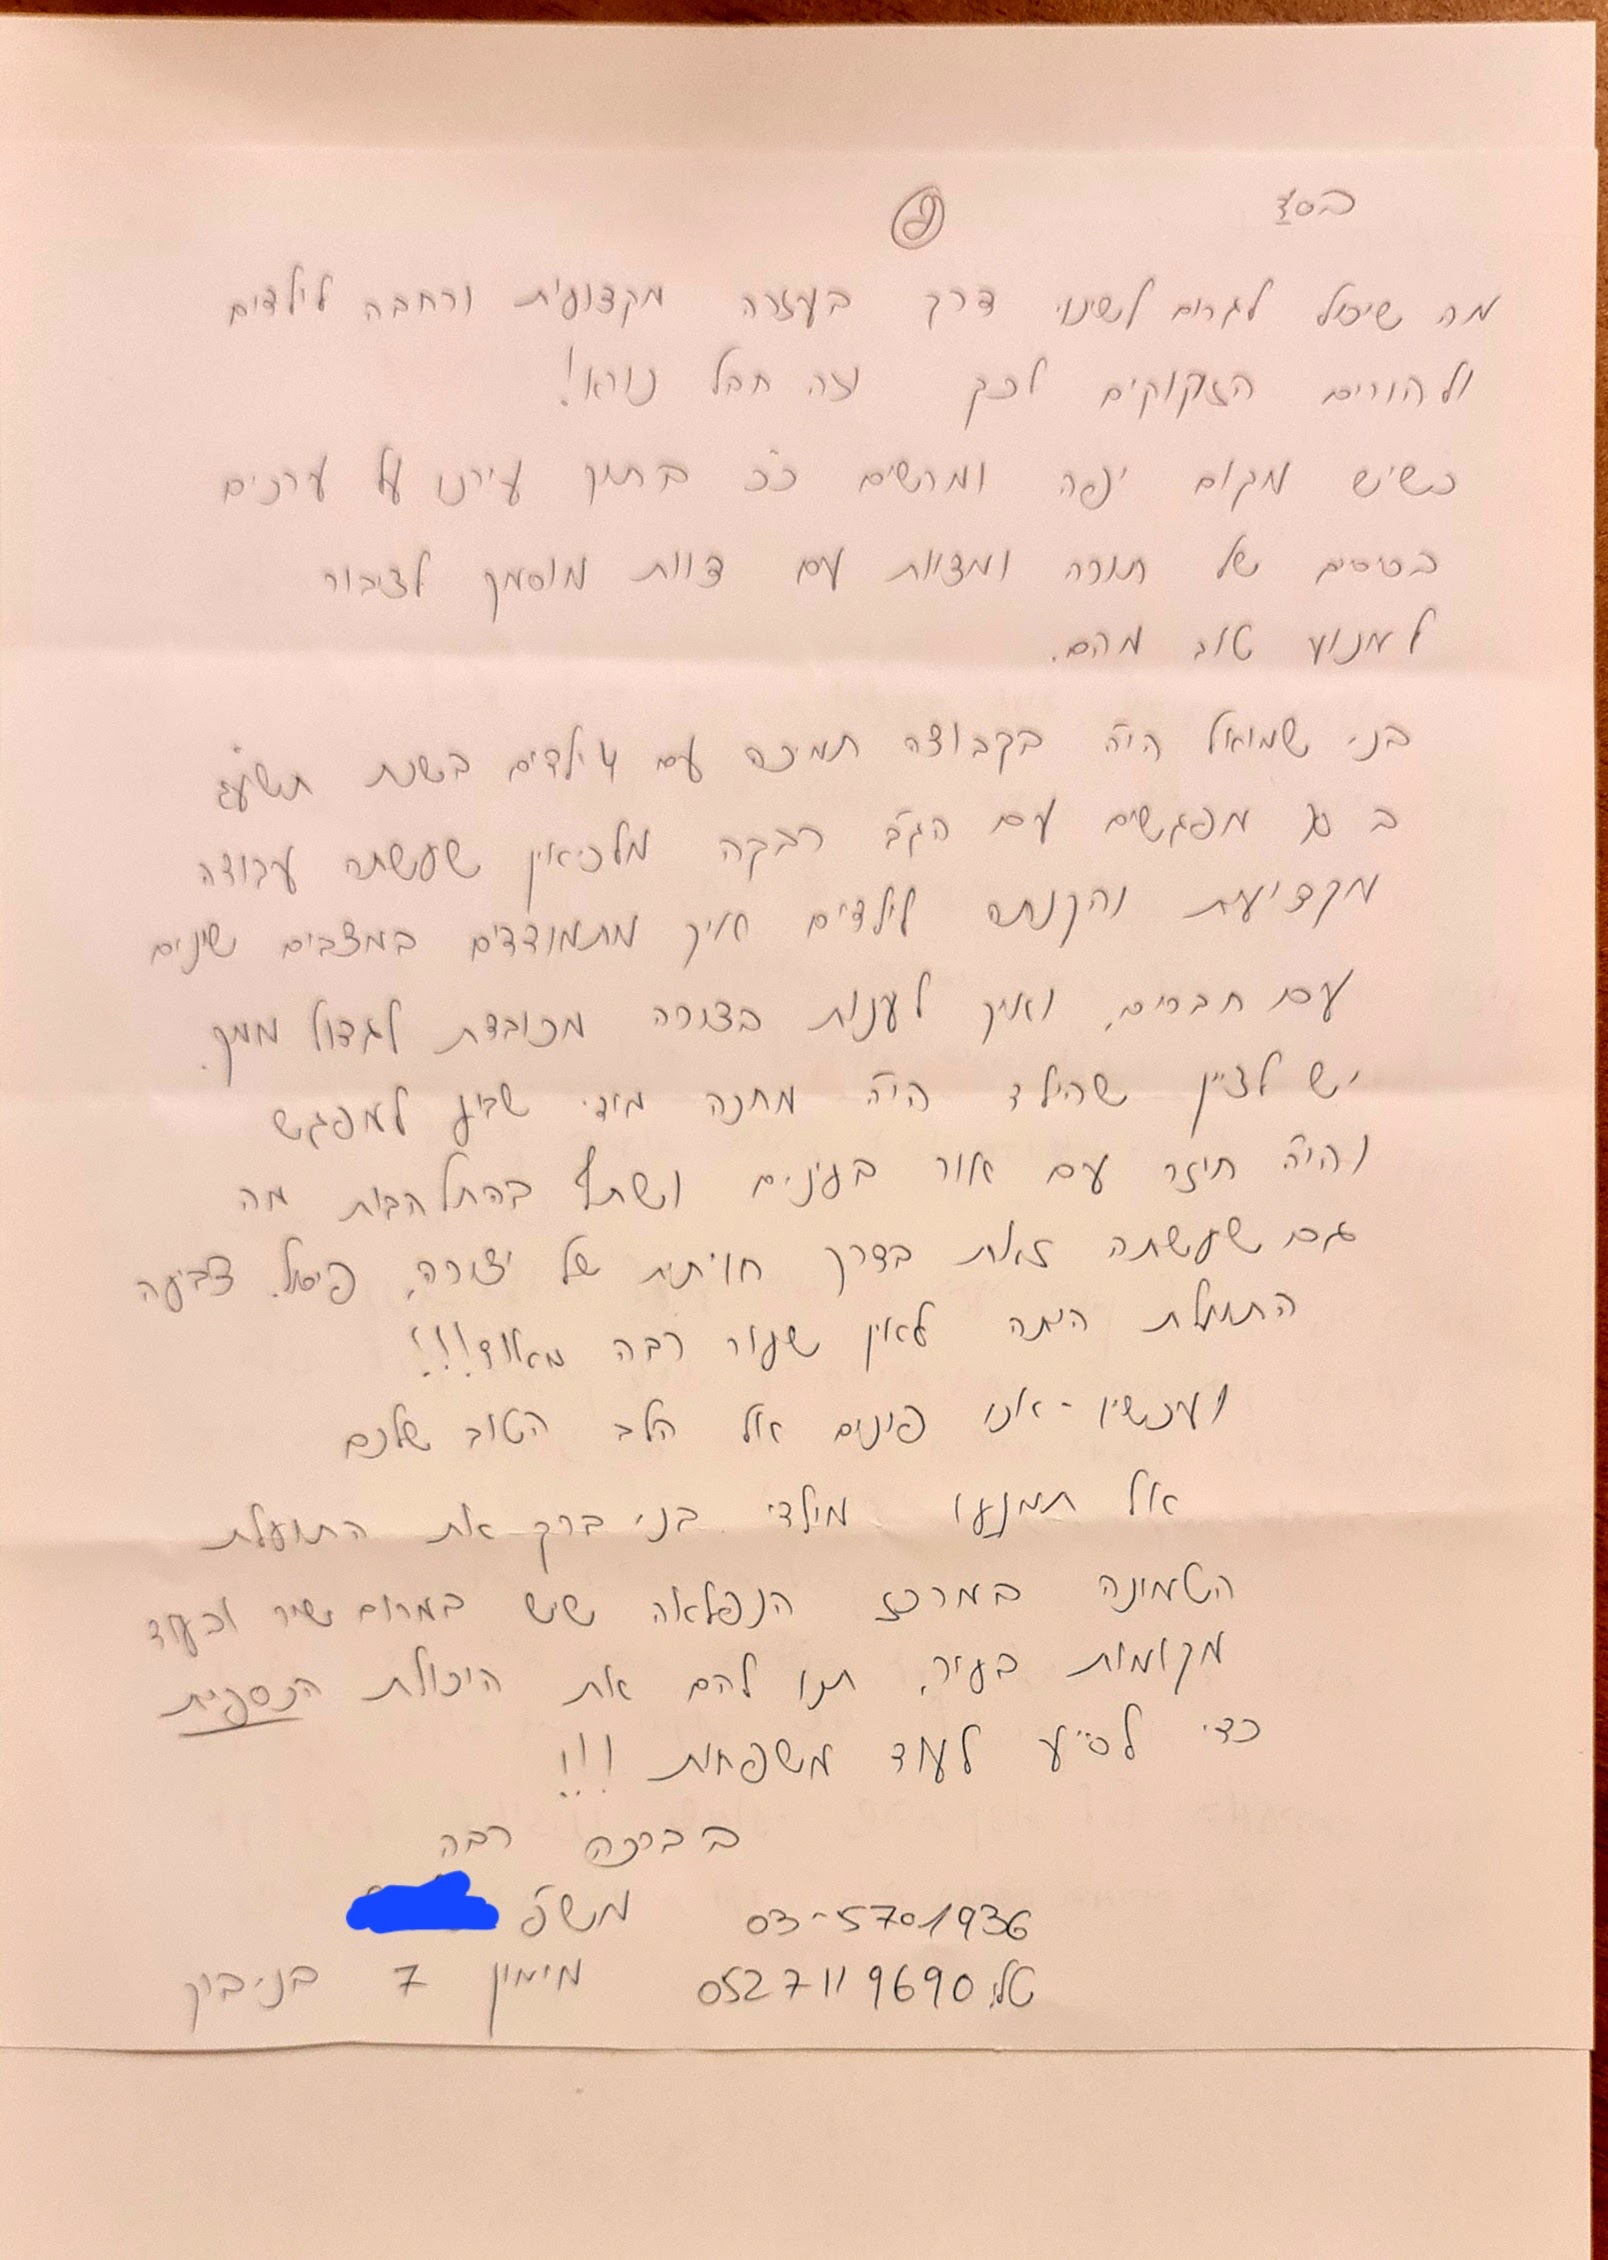 בס"ד
②
מה שיכול לגרום לשינוי דרך בעזרה מקצועית ורחבה לילדים
ולהורים הזקוקים לכך וזה חבל נורא!
כשיש מקום יפה ומרשים כ"כ בתוך עירנו על ערכים
בסיסים של תורה ומצוות עם צוות מוסמך לציבור
למנוע טוב מהם.
בני שמואל היה בקבוצה תמיכה עם 4 ילדים בשנת תשע"ג
ב מפגשים עם הגב' רבקה מלכיאין שעשתה עבודה
מקצועית והקנתה לילדים איך מתמודדים במצבים שונים
עם חברים, ואיך לענות בצורה מכובדת לגדול ממך.
יש לציין שהילד היה מחכה מידי שבוע למפגש
והיה חוזר עם אור בעינים ושתף בהתלהבות מה
גם שעשתה זאת בדרך חויתית של יצירה, פיסול, צביעה
התועלת היתה לאין שעור רבה מאוד!!!
ועכשיו - אנו פונים אל הלב הטוב שלכם
אל תמנעו מילדי בני ברק את התועלת
הטמונה במרכז הנפלאה שיש במרום שיר ובעוד
מקומות בעיר, תנו להם את היכולת הכספית
כדי לסייע לעוד משפחות !!!
בברכה רבה
משפ' 03-5701936
טל: 0527119690 מימון 7 בני-ברק